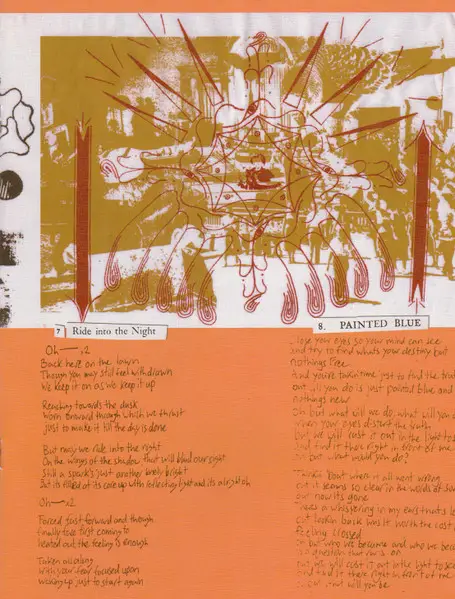 7 Ride into the Night
Oh— x2
Back here on the lawn
Though you may still feel withdrawn
We keep it on as we keep it up
Reaching towards the dusk
Worn forward through which we thrust
Just to make it till the day is done
But may we ride into the night
On the wings of the shadow that will blind our sight
Still a spark's just another body bright
But its filled at its core up with reflecting light and its alright oh
Oh— x2
Forced fast forward and though
finally to a first coming to
heated out the feeling is enough
Taken
with your fear focused upon
waking up just to start again
8. PAINTED BLUE
lose your eyes so your mind can see
and try to find whats your destiny but
nothings free
And you're takin time just to find the truth
but all you do is just painted blue and
nothings new
Oh but what will we do, what will you
when your eyes distort the truth
but we will cast it out in the light to
and find it there right in front of me
oh but what would you do?
Talkin 'bout where it all went wrong
cut it seems so clear in the words of
but now its done
hear a whispering in my ears thats
cut lookin back was it worth the cost
feeling crossed
Oh but who we become and who we
is a question that
but we will cast it out in the light to see
and find it there right in front of me
will you be